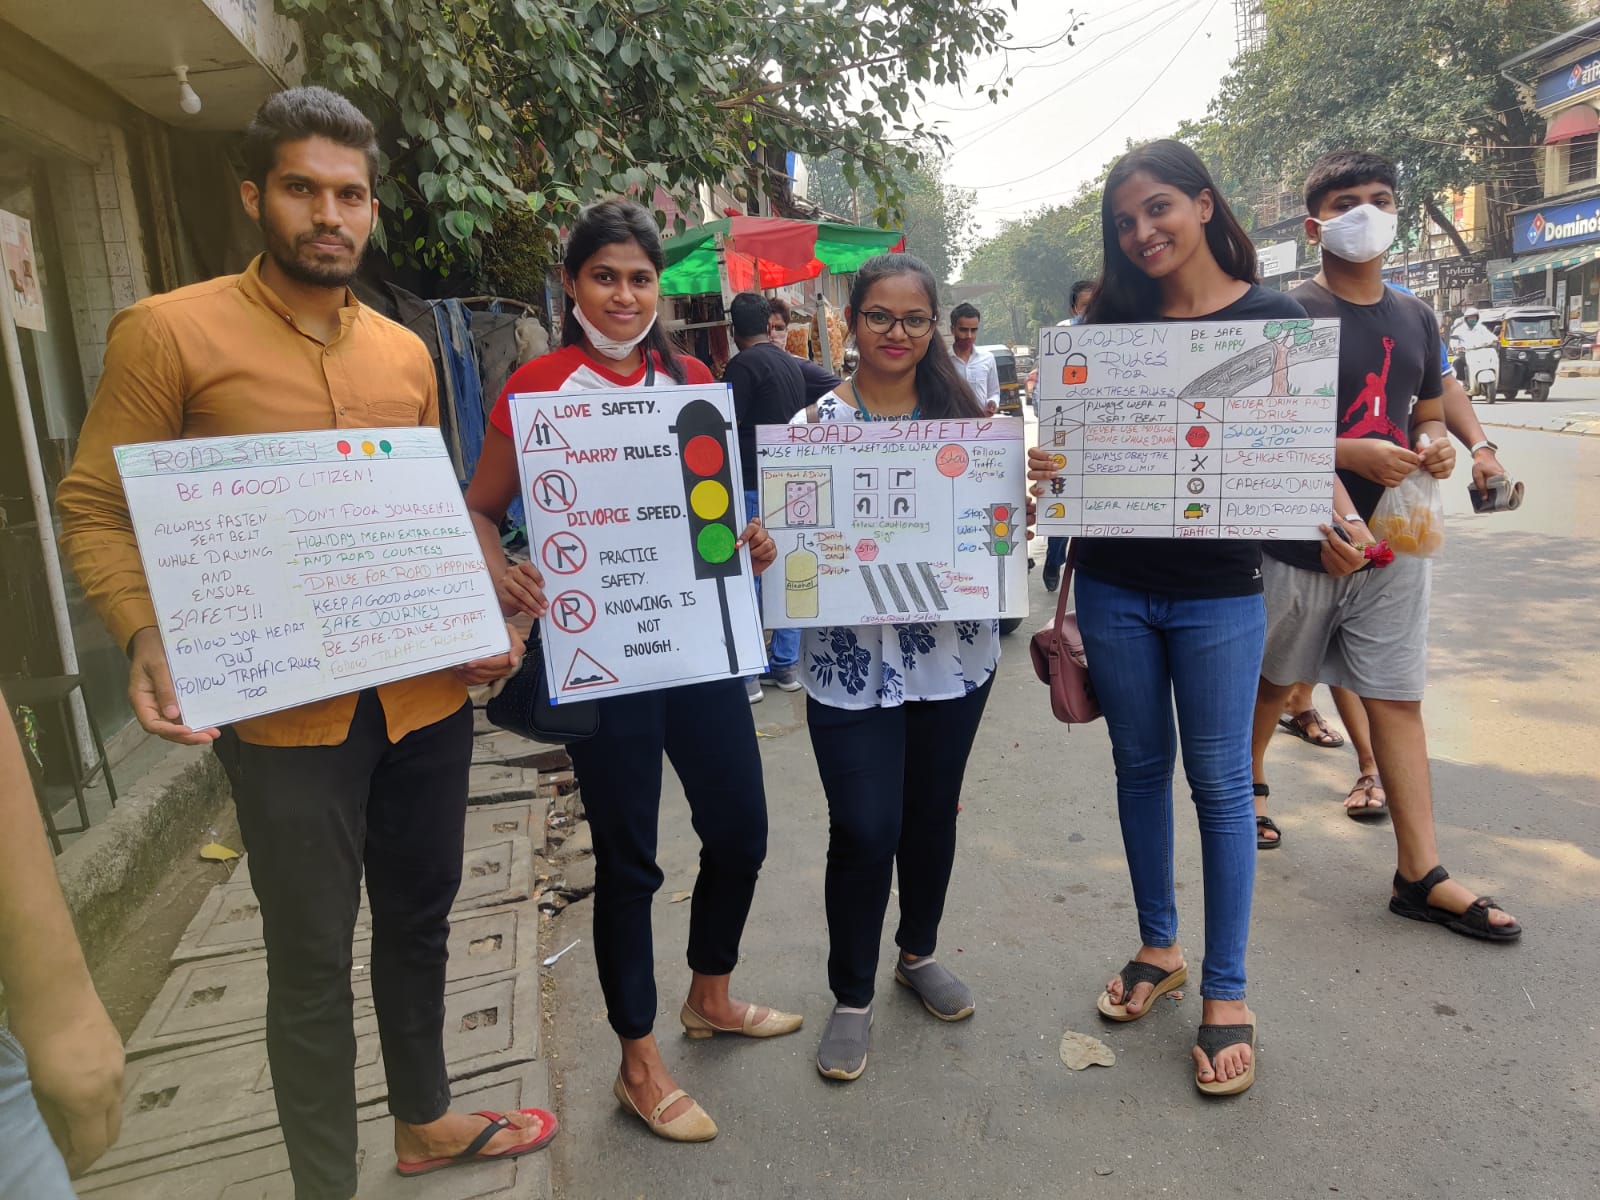 ROAD SAFETY
BE A GOOD CITIZEN!
ALWAYS FASTEN
SEAT BELT
WHILE DRIVING
AND
ENSURE
SAFETY!!
FOLLOW YOR HEART
BUT
FOLLOW TRAFFIC RULES
TOO
DON'T FOOL YOURSELF!!
HOLIDAY MEAN EXTRA CARE...
AND ROAD COURTESY
DRIVE FOR ROAD HAPPINESS
KEEP A GOOD LOOK-OUT!
SAFE JOURNEY
BE SAFE. DRIVE SMART.
FOLLOW TRAFFIC RULES.
LOVE SAFETY.
MARRY RULES.
DIVORCE SPEED.
PRACTICE
SAFETY.
KNOWING IS
NOT
ENOUGH.
P
ROAD SAFETY
USE HELMET LEFT SIDE WALK
Don't text & Drive
SLOW
follow
Traffic
Signals
follow Cautionary
Sign
Don't
Drink
and
Drive
STOP
Alcohol
Stop
Wait
Go
use
Zebra
Crossing
Cross Road Safely
10 GOLDEN
RULES
FOR
LOCK THESE RULES
BE SAFE
BE HAPPY
ALWAYS WEAR A
SEAT BELT
NEVER DRINK AND
DRIVE
NEVER USE MOBILE
PHONE WHILE
STOP
SLOW DOWN ON
STOP
ALWAYS OBEY THE
SPEED LIMIT
VEHICLE FITNESS
CAREFUL DRIVING
WEAR HELMET
AVOID ROAD RAGE
FOLLOW TRAFFIC RULE
Domino's
stylette